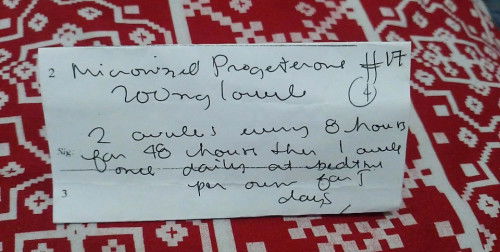 2 Micronized Progeterone #17
200mg/ovule 4
2 ovules every 8 hours
Sig: for 48 hours then 1 ovule
once daily at bedtime
3 per for 5
days